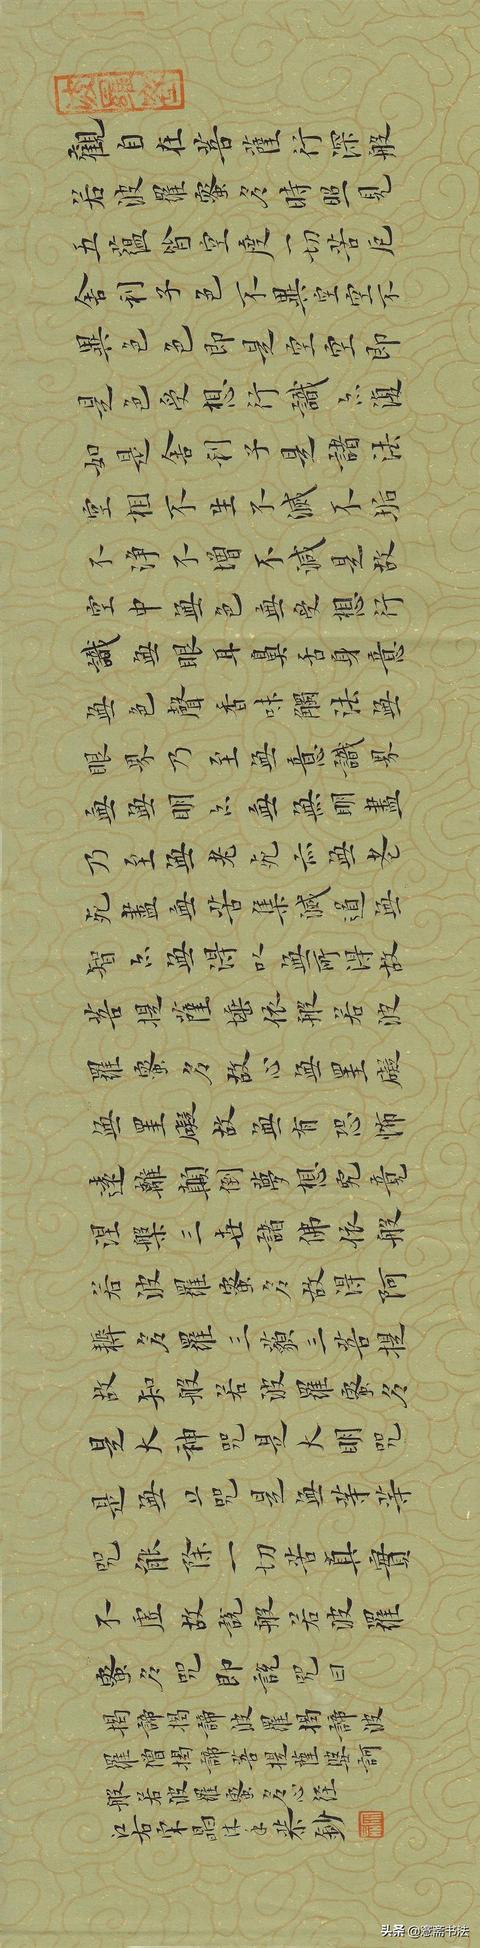 觀自在菩薩行深般
若波羅蜜多時照見
五蘊皆空度一切苦厄
舍利子色不異空空不
異色色即是空空即
是色受想行識亦復
如是舍利子是諸法
空相不生不滅不垢
不淨不增不減是故
空中無色無受想行
識無眼耳鼻舌身意
無色聲香味觸法無
眼界乃至無意識界
無無明亦無無明盡
乃至無老死亦無老
死盡無苦集滅道無
智亦無得以無所得故
菩提薩埵依般若波
羅蜜多故心無罣礙
無罣礙故無有恐怖
遠離顛倒夢想究竟
涅槃三世諸佛依般
若波羅蜜多故得阿
耨多羅三藐三菩提
故知般若波羅蜜多
是大神咒是大明咒
是無上咒是無等等
咒能除一切苦真實
不虛故說般若波羅
蜜多咒即說咒曰
揭諦揭諦波羅揭諦波
羅僧揭諦菩提薩婆訶
般若波羅蜜多心經
江右宋晶沐手恭鈔
头条 @愙斋书法